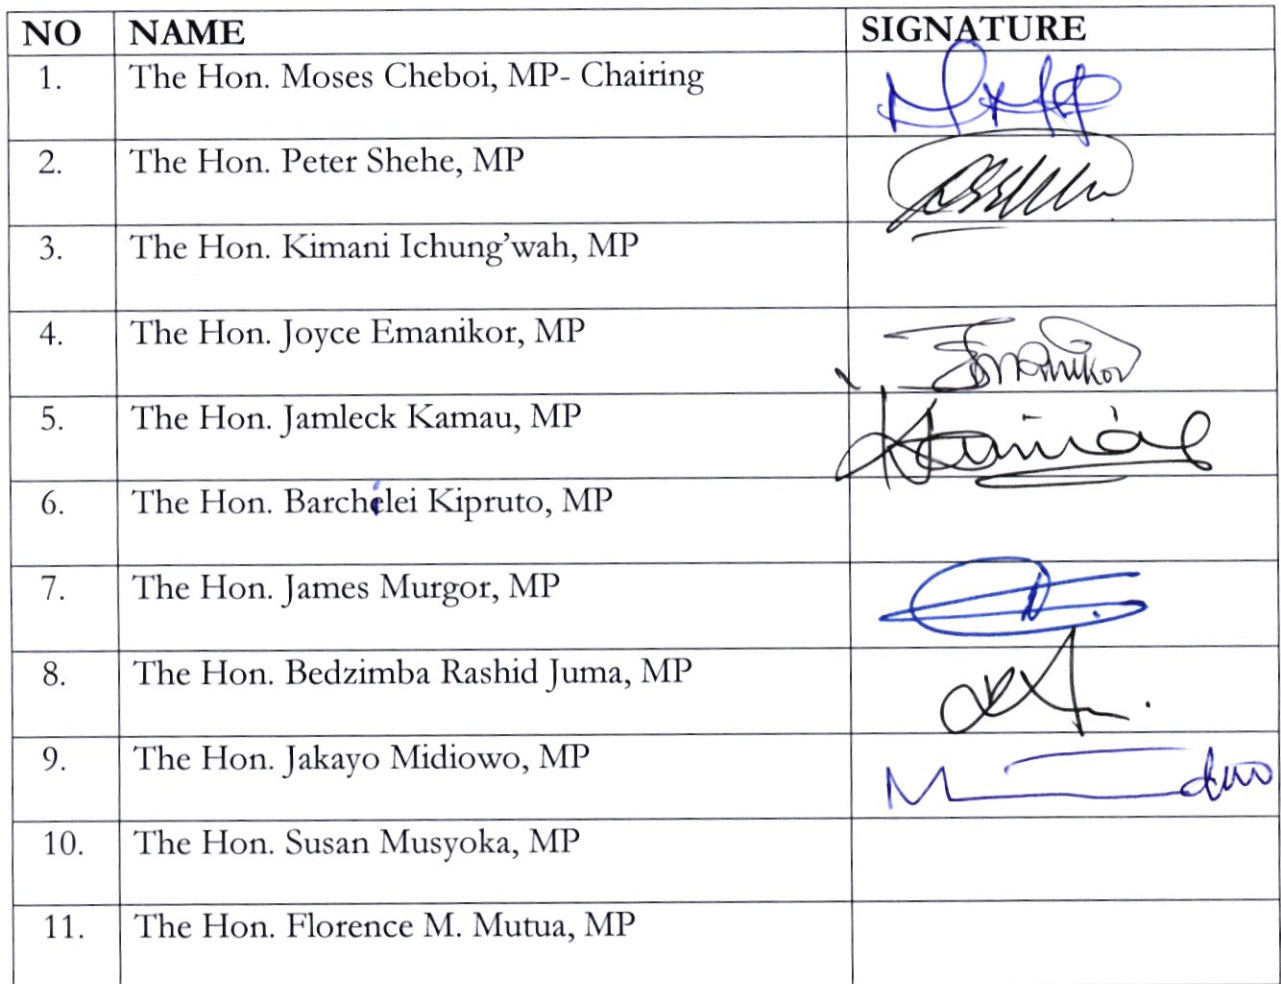 NO NAME SIGNATURE
1. The Hon. Moses Cheboi, MP- Chairing
2. The Hon. Peter Shehe, MP
3. The Hon. Kimani Ichung’wah, MP
4. The Hon. Joyce Emanikor, MP Emanikor
5. The Hon. Jamleck Kamau, MP
6. The Hon. Barchelei Kipruto, MP
7. The Hon. James Murgor, MP
8. The Hon. Bedzimba Rashid Juma, MP
9. The Hon. Jakayo Midiowo, MP
10. The Hon. Susan Musyoka, MP
11. The Hon. Florence M. Mutua, MP